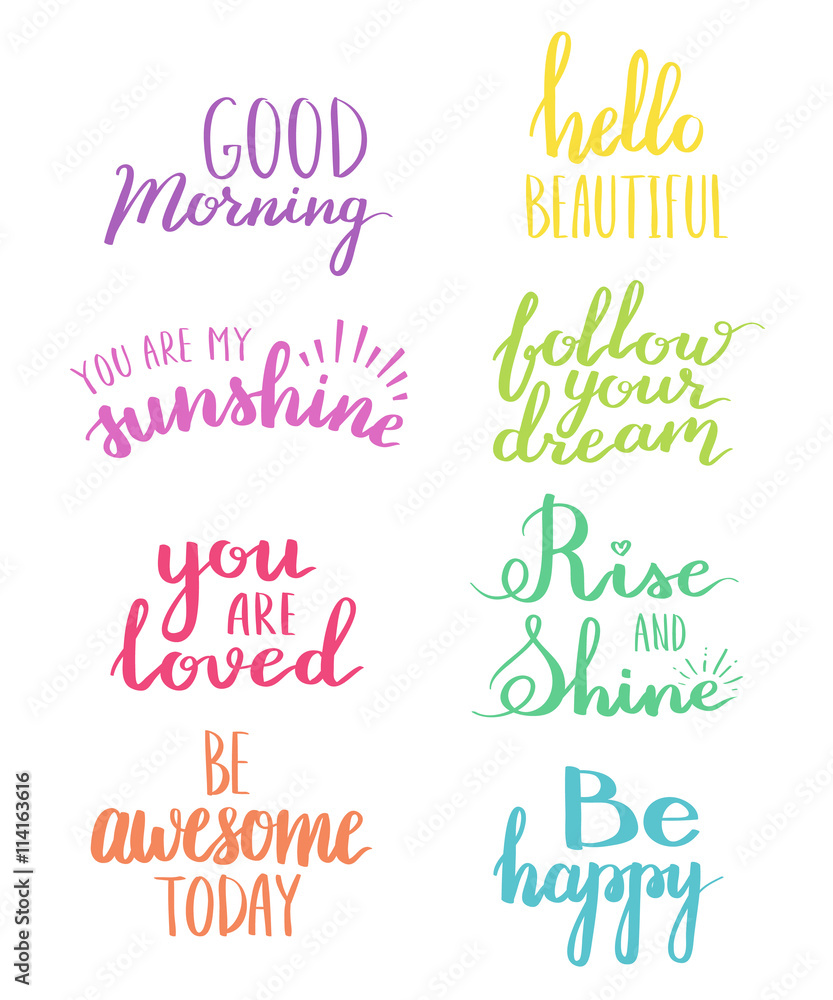 GOOD
Morning
hello
BEAUTIFUL
YOU ARE MY
sunshine
follow
your
dream
you
ARE
loved
Rise
AND
Shine
BE
awesome
TODAY
Be
happy
Adobe Stock | #114163616